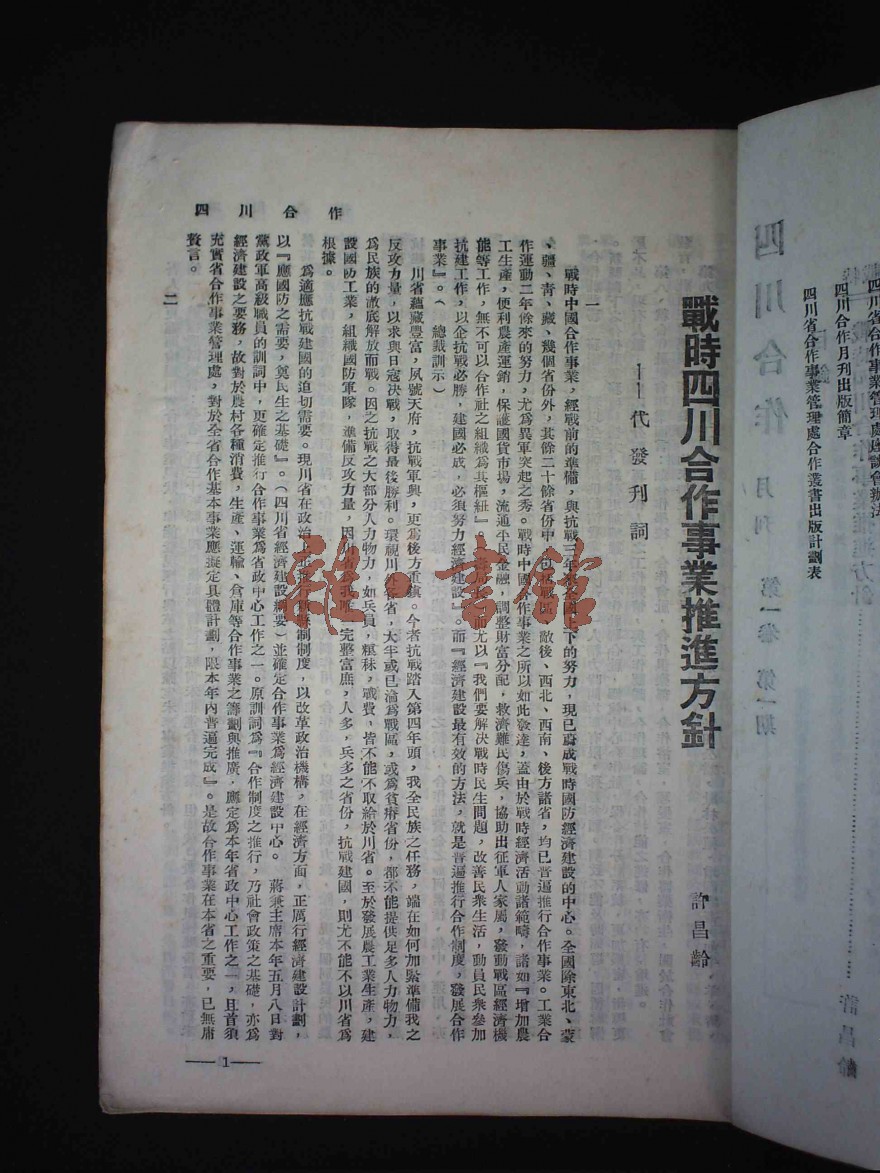 四川省合作事業管理處
四川合作月刊出版簡章
四川省合作事業管理處合作叢書出版計劃表
許昌齡
四川合作月刊 第一卷 第一期
戰時四川合作事業推進方針
——代發刊詞
許昌齡
一
戰時中國合作事業，經戰前的準備，與抗戰三年來全國上下的努力，現已蔚成戰時國防經濟建設的中心。全國除東北、蒙
、疆、青、藏、幾個省份外，其餘二十餘省份中，包括戰區、敵後、西北、西南、後方諸省，均已普遍推行合作事業。工業合
作運動二年餘來的努力，尤爲異軍突起之秀。戰時中國合作事業之所以如此發達，蓋由於戰時經濟活動諸範疇，諸如『增加農
工生產，便利農產運銷，保護國貨市場，流通平民金融，調整財富分配，救濟難民傷兵，協助出征軍人家屬，發動戰區經濟機
能等工作，無不可以合作社之組織爲其樞紐』而尤以『我們要解決戰時民生問題，改善民衆生活，動員民衆參加
抗建工作，以企抗戰必勝，建國必成，必須努力經濟建設』。而『經濟建設最有效的方法，就是普遍推行合作制度，發展合作
事業』。（總裁訓示）
川省蘊藏豐富，夙號天府，抗戰軍興，更爲後方重鎮。今者抗戰踏入第四年頭，我全民族之任務，端在如何加緊準備我之
反攻力量，以求與日寇決戰，取得最後勝利。環視川外各省，大半或已淪爲戰區，或爲貧瘠省份，都不能提供足多人力物力，
爲民族的澈底解放而戰。因之抗戰之大部分人力物力，如兵員，糧秣，戰費，皆不能不取給於川省。至於發展農工業生產，建
設國防工業，組織國防軍隊，準備反攻力量，因川省爲我唯一完整富庶，人多，兵多之省份，抗戰建國，則尤不能不以川省爲
根據。
爲適應抗戰建國的迫切需要。現川省在政治上正推行新縣制制度，以改革政治機構，在經濟方面，正厲行經濟建設計劃，
以『應國防之需要，奠民生之基礎』。（四川省經濟建設綱要）並確定合作事業爲經濟建設中心。 蔣兼主席本年五月八日對
黨政軍高級職員的訓詞中，更確定推行合作事業爲省政中心工作之一。原訓詞爲『合作制度之推行，乃社會政策之基礎，亦爲
經濟建設之要務，故對於農村各種消費，生產、運輸、倉庫等合作事業之籌劃與推廣，應定爲本年省政中心工作之一，且首須
充實省合作事業管理處，對於全省合作基本事業應擬定具體計劃，限本年內普遍完成』。是故合作事業在本省之重要，已無庸
贅言。
二
四川合作
—1—